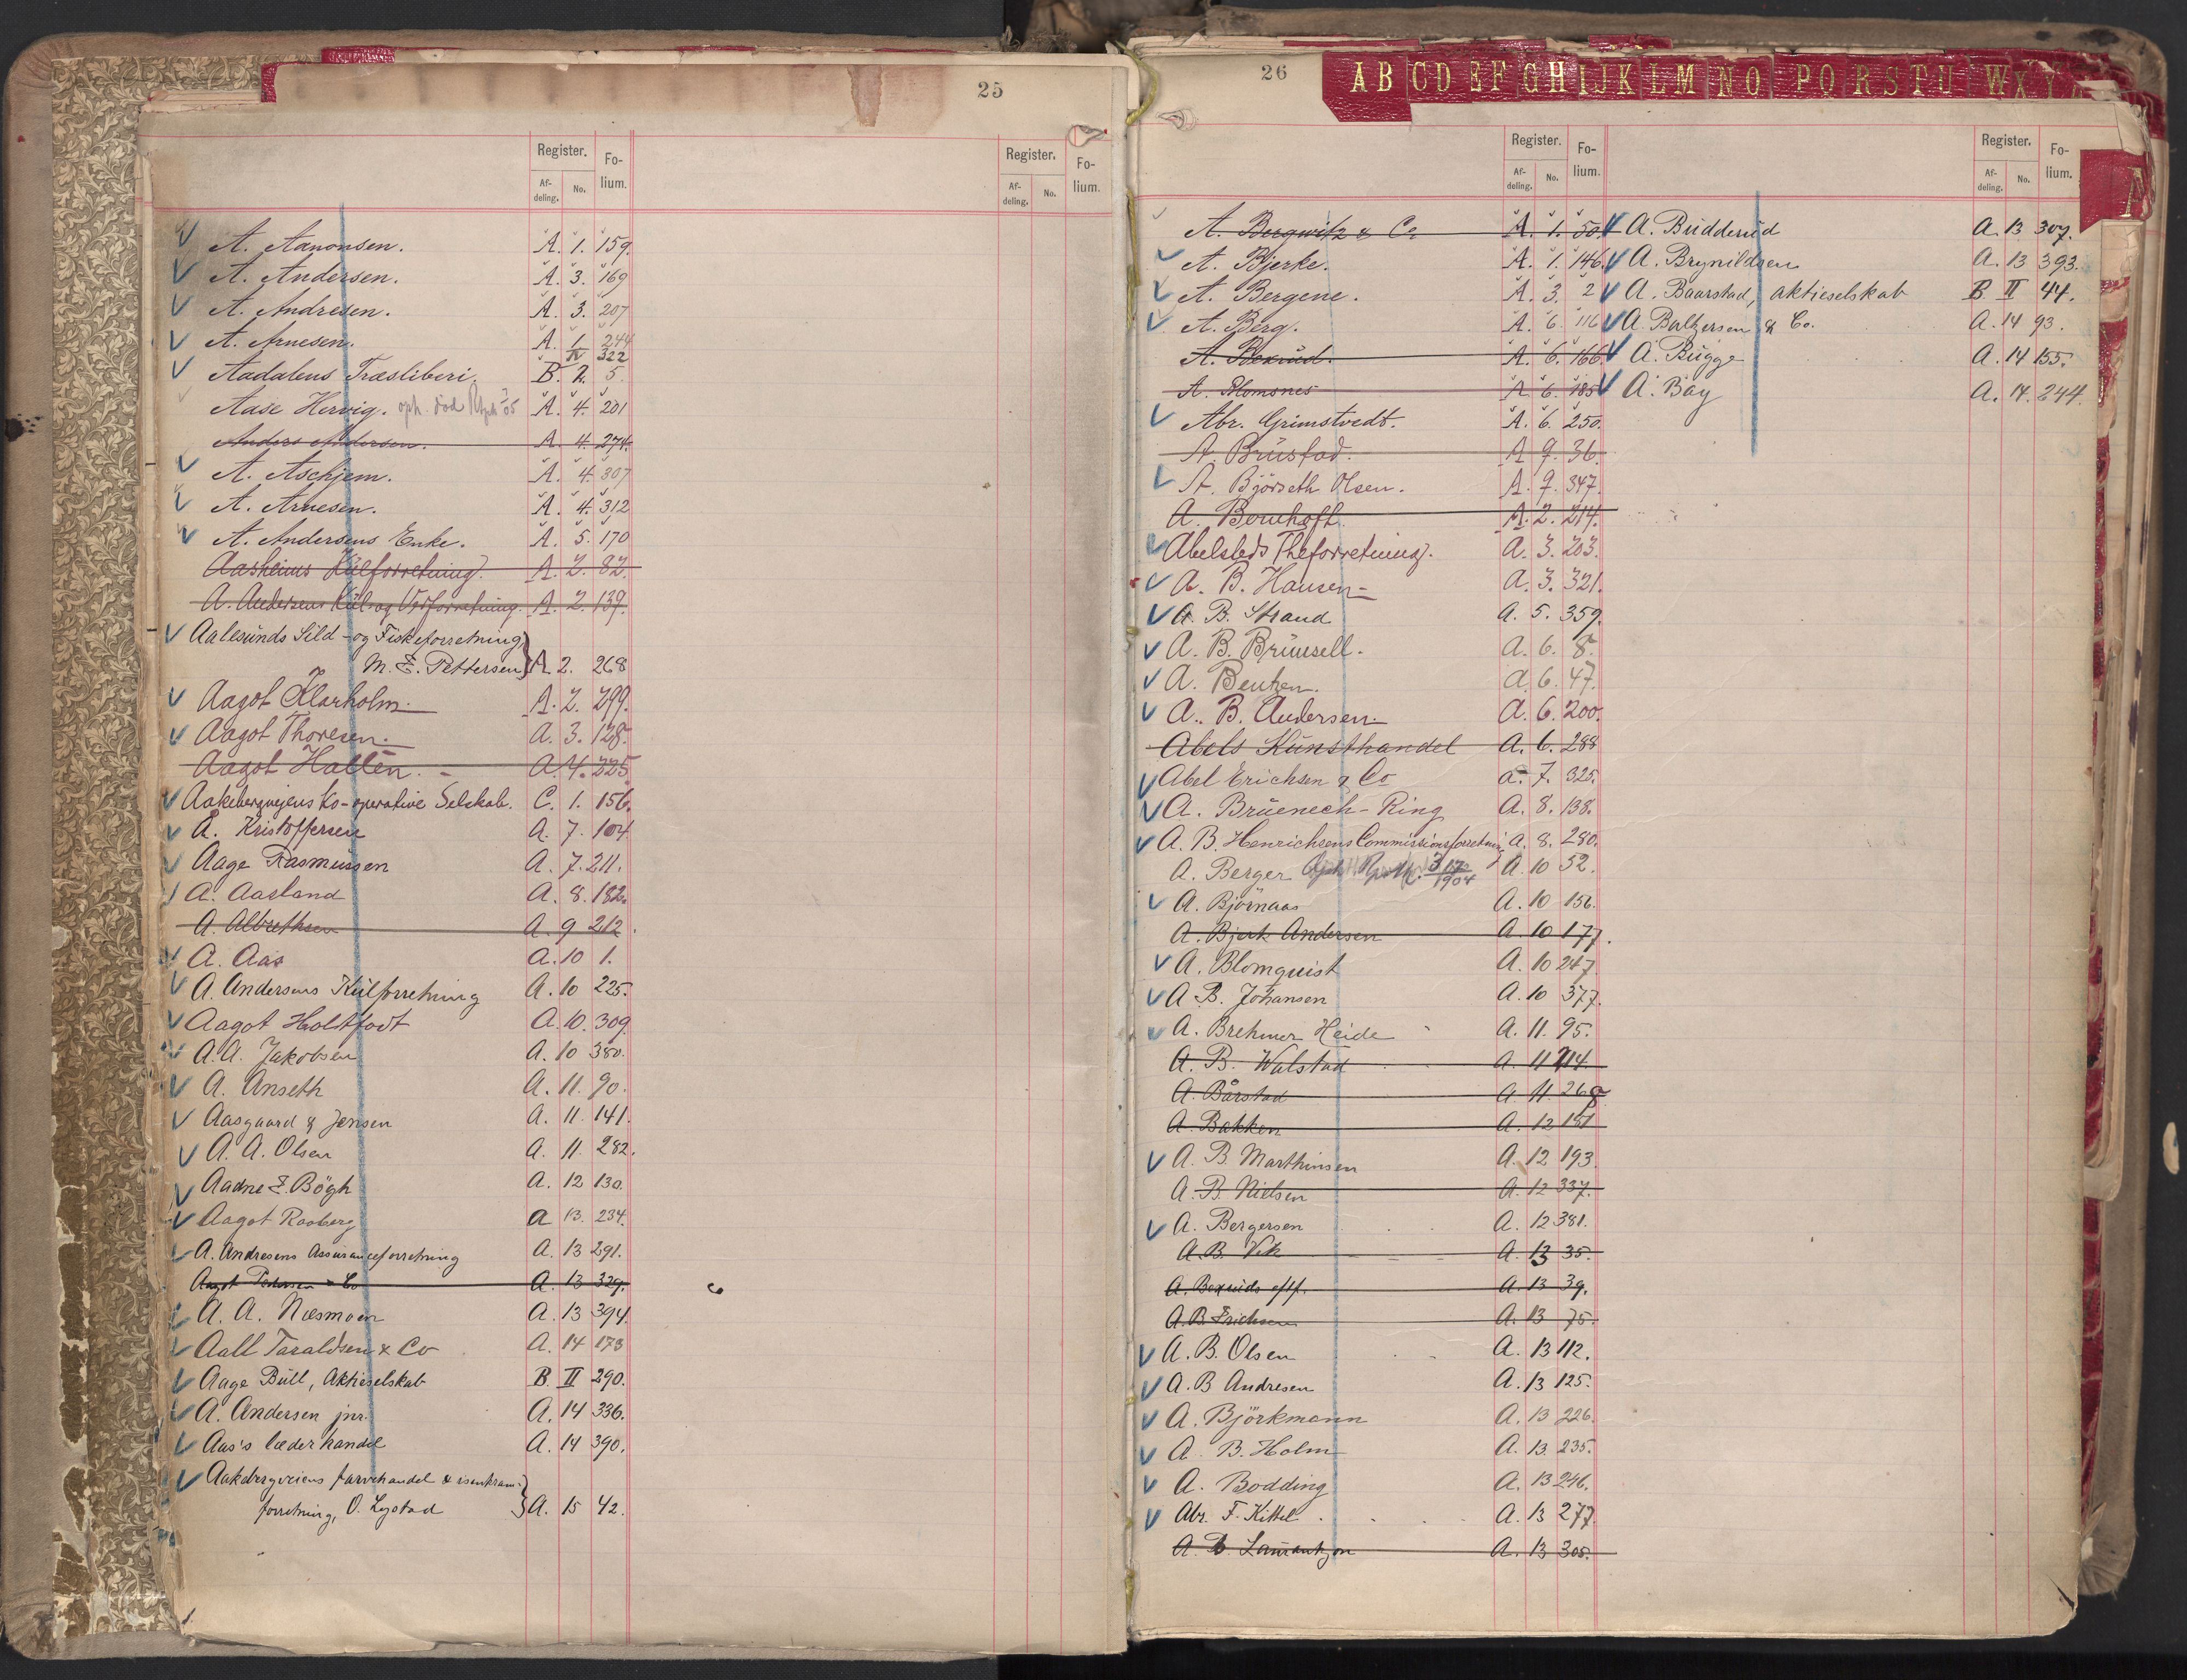 25
Register.
Fo-
lium.
Af-
deling.
No.
Register.
Fo-
lium.
Af-
deling.
No.
A. Aanonsen. A. 1. 159.
A. Andersen. A. 3. 169
A. Andresen. A. 3. 207
A. Arnesen. A. 1. 244
IV 322
Aadalens Træsliberi. B. 2. 5.
Aase Hervig. oph. A. 4. 201
Anders Andersen. A. 4. 274.
A. Aschjem. A. 4. 307
A. Arnesen. A. 4. 312
A. Andersens Enke. A. 5. 170
Aasheims Külforretning. A. 2. 82.
A. Andersens Kül og Vedforretning. A. 2. 139.
Aalesunds Sild- og Fiskeforretning
M. E. Pettersen } A 2. 268
Aagot Klarholm. A. 2. 299.
Aagot Thoresen. A. 3. 128.
Aagot Hallén. A. 4. 325
Aakebergvejens Ko-operative Selskab. C. 1. 156.
A. Kristoffersen A. 7. 104
Aage Rasmussen A. 7. 211.
A. Aasland A. 8. 182.
A. Albrethsen A. 9 212.
A. Aas A. 10 1.
A. Andersens Külforretning A. 10 225.
Aagot Holtfodt A. 10. 309
A. A. Jakobsen A. 10 380.
A. Anseth A. 11. 90.
Aasgaard & Jensen A. 11. 141.
A. A. Olsen A. 11. 282.
Aadne E. Bögh A. 12 130.
Aagot Rasberg A 13. 234.
A. Andresens Assuranceforretning A. 13 291.
Aagot Pedersen & Co A. 13 329.
A. A. Næsmoen A. 13 394.
Aall Taraldsen & Co A. 14 173
Aage Büll, Aktieselskab B. II 290.
A. Andersen jnr. A. 14 336.
Aas's læderhandel A. 14 390.
Aakebergveiens farvehandel & isenkram-
forretning, O. Lystad } A. 15 42.
26
A B C D E F G H I J K L M N O P Q R S T U W X Y
A
Register.
Fo-
lium.
Af-
deling.
No.
Register.
Fo-
lium.
Af-
deling.
No.
A. Bergwitz & Co A. 1. 50
A. Bjerke. A. 1. 146.
A. Bergene. A. 3. 2
A. Berg. A. 6. 116
A. Bexrud. A. 6. 166
A. Blomsnes A. 6. 185
Abr. Grimstvedt. A. 6. 250.
A. Brüstad. A 9. 36.
A. Björseth Olsen. A. 9. 347.
A. Bomhoff. A. 2. 214.
Abelsteds Theforretning. A. 3. 203.
A. B. Hansen A. 3. 321.
A. B. Strand A. 5. 359.
A. B. Brünsell. A. 6. 8.
A. Bentzen. A. 6. 47.
A. B. Andersen A. 6. 200.
Abels Künsthandel A. 6. 288
Abel Erichsen & Co A. 7. 325.
A. Brüenech-Ring A. 8. 138.
A. B. Henrichsens Commissionsforretning A. 8. 280.
A. Berger A. 10 52.
A. Björnaas A. 10 156.
A. Bjerk Andersen A. 10 177.
A. Blomquist A. 10 247
A. B. Johansen A. 10 377.
A. Brehmer Heide A. 11. 95.
A. B. Walstad A. 11 214.
A. Bårstad A 11. 268
A. Bakken A. 12 151
A. B. Marthinsen A. 12 193.
A. B. Nielsen A. 12 337.
A. Bergersen A. 12 381.
A. B. Vik A. 13 35.
A. Bexruds eftf. A. 13 39.
A. B. Erichsen A. 13 75.
A. B. Olsen A. 13 112.
A. B. Andresen A. 13 125.
A. Björkmann A. 13 226.
A. B. Holm A. 13. 235.
A. Bodding A. 13 246.
Abr. F. Kittel A. 13 277.
A. B. Laurantzon A. 13 305.
A. Büdderüd A. 13 307.
A. Brynildsen A. 13 393.
A. Baarstad, aktieselskab B. II 44.
A. Baltzersen & Co. A. 14 93.
A. Bügge A. 14 155.
A. Bay A. 14. 244.